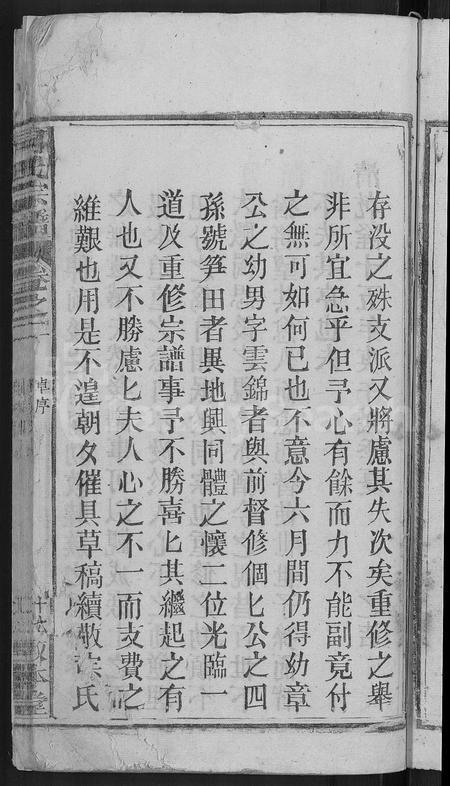 存没之殊支派又將慮其失次矣重修之舉
非所宜急乎但予心有餘而力不能副竟付
之無可如何已也不意今六月間仍得幼章
公之幼男字雲錦者與前督修個匕公之四
孫號笋田者異地興同體之懷二位光臨一
道及重修宗譜事予不勝喜匕其繼起之有
人也又不勝慮匕夫人心之不一而支費之
維艱也用是不遑朝夕催具草稿續敬 氏
宗譜 卷之一
序